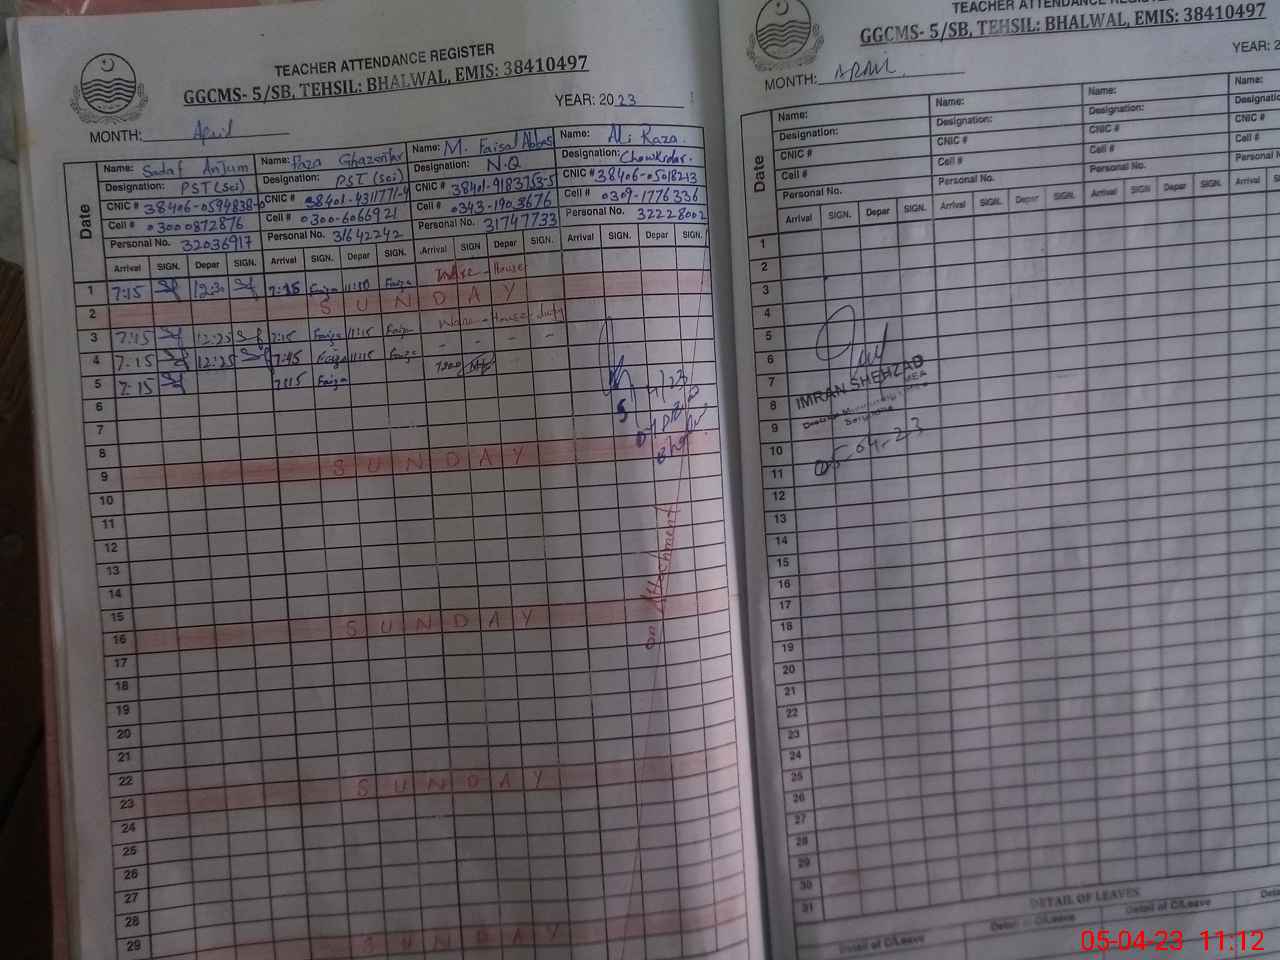 TEACHER ATTENDANCE REGISTER
GGCMS- 5/SB, TEHSIL: BHALWAL, EMIS: 38410497
YEAR: 2023
MONTH: April
Date
Name: Sadaf Anjum
Designation: PST (Sci)
CNIC # 38406-0594838-0
Cell # 03000872876
Personal No. 32036917
Name: Faza Ghazanfar
Designation: PST (Sci)
CNIC # 38401-4311771-4
Cell # 0300-6066921
Personal No. 31642242
Name: M. Faisal Abbas
Designation: N.Q
CNIC # 38401-9183753-5
Cell # 0343-1903676
Personal No. 31747733
Name: Ali Raza.
Designation: Chowkidar.
CNIC # 38406-0508213
Cell # 0309-1776336
Personal No. 32228002
Arrival SIGN. Depar SIGN. Arrival SIGN. Depar SIGN. Arrival SIGN Depar SIGN. Arrival SIGN. Depar SIGN.
1 7:15 12:30 7:15 Faiza 11:10 Faiza Ware - House
2 SUNDAY
3 7:15 12:25 7:15 Faiza 11:15 Faiza Ware - House - duty
4 7:15 12:25 7:15 Faiza 11:15 Faiza - - - -
5 7:15 7:15 Faiza
6
7
8
9 SUNDAY
10
11
12
13
14
15
16 SUNDAY
17
18
19
20
21
22
23 SUNDAY
24
25
26
27
28
29
SUNDAY
on Attachment
TEACHER ATTENDANCE REGISTER
GGCMS- 5/SB, TEHSIL: BHALWAL, EMIS: 38410497
YEAR: 2
MONTH: APRIL
Date
Name:
Designation:
CNIC #
Cell #
Personal No.
Name:
Designation:
CNIC #
Cell #
Personal No.
Name:
Designation:
CNIC #
Cell #
Personal No.
Name:
Designatio
CNIC #
Cell #
Personal N
Arrival SIGN. Depar SIGN. Arrival SIGN. Depar SIGN. Arrival SIGN. Depar SIGN. Arrival SI
1
2
3
4
5
6
7
8
9
10
11
12
13
14
15
16
17
18
19
20
21
22
23
24
25
26
27
28
29
30
31
IMRAN SHEHZAD
05-04-23
DETAIL OF LEAVES
Detail of C/Leave Detail of C/Leave Detail of C/Leave Deta
05-04-23 11:12